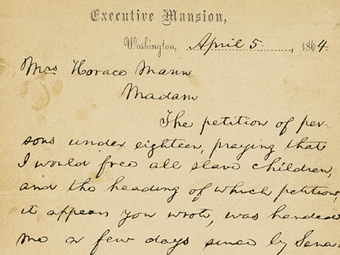 Executive Mansion,
Washington, April 5, 1864.
Mrs Horace Mann
Madam
The petition of per-
sons under eighteen, praying that
I would free all slave children,
and the heading of which petition
it appears you wrote, was handed
me a few days since by Sena